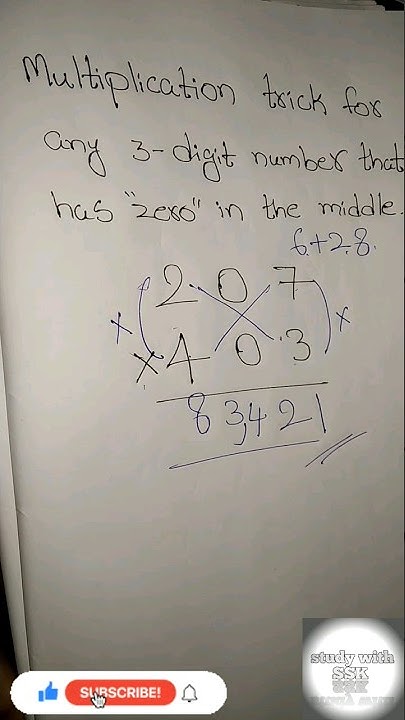 Multiplication trick for
any 3-digit number that
has "zero" in the middle.
6+28.
2 0 7
× ×
×4 0 3
83,421
study with
SSK
SUBSCRIBE!